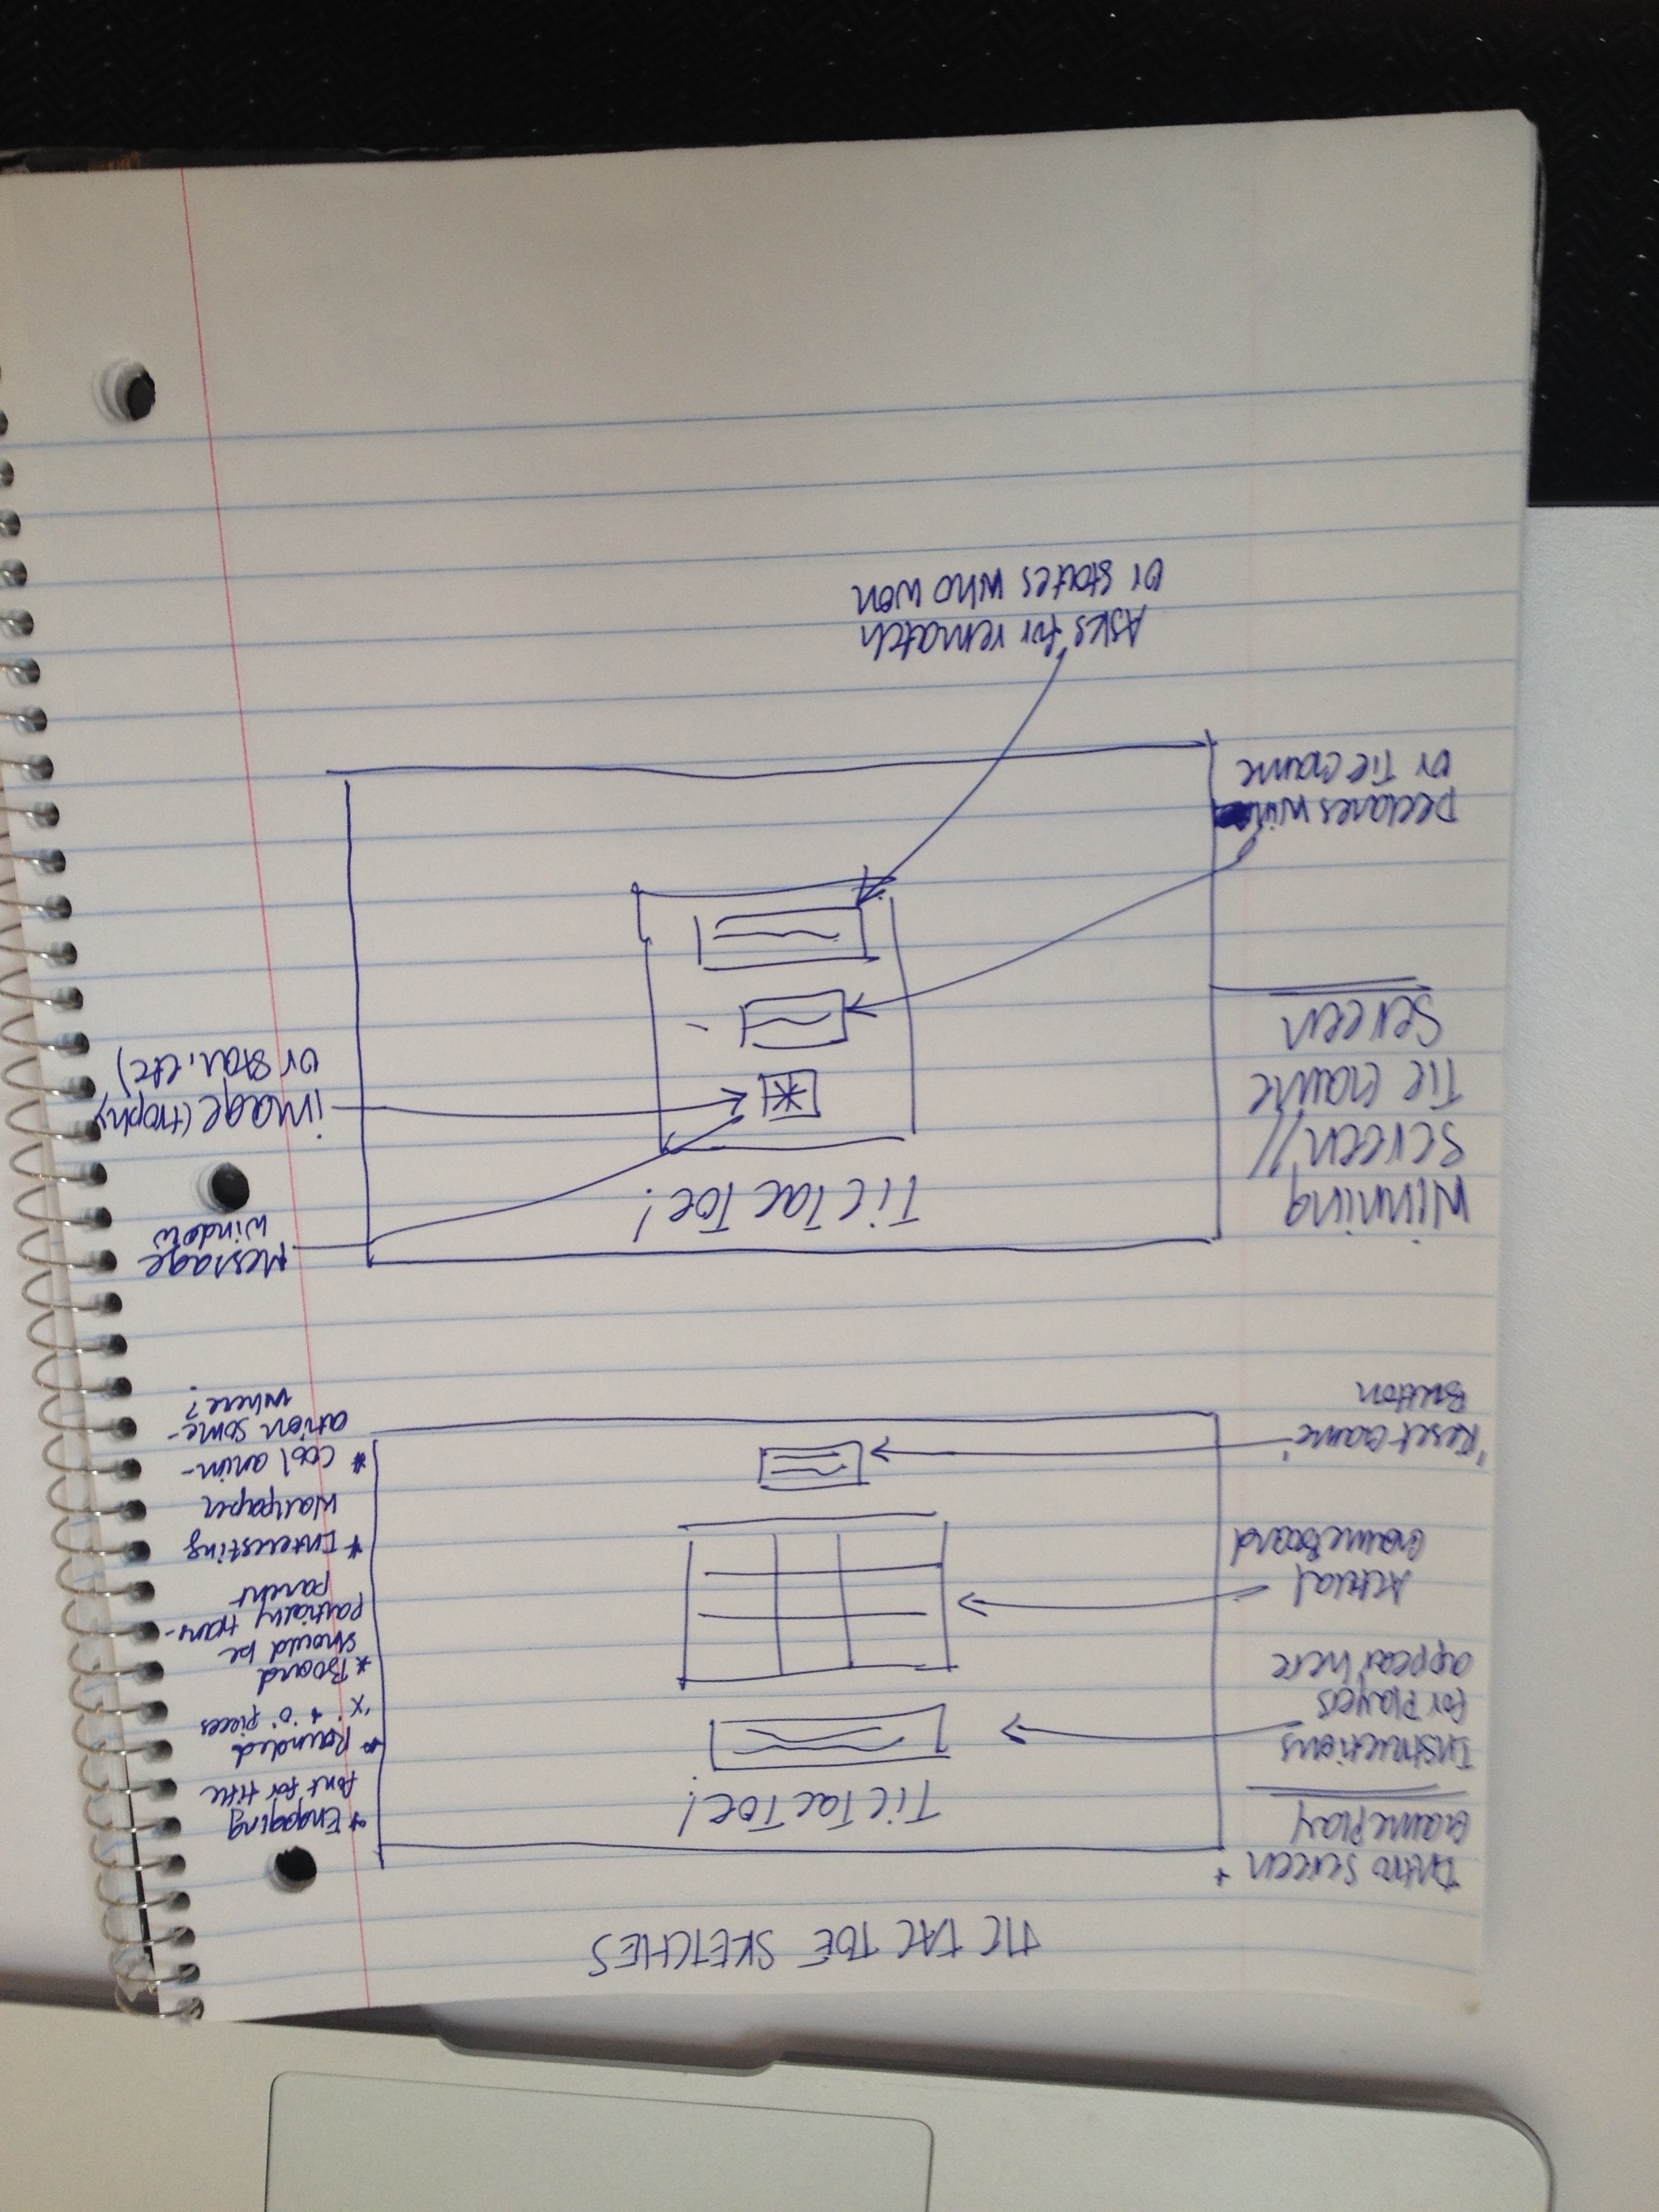 TIC TAC TOE SKETCHES
Intro Screen +
GamePlay
Instructions
for Players
appear here
Actual
GameBoard
"Reset Game"
Button
Tic Tac Toe!
* Engaging
font for title
* Rounded
'X' & 'O' pieces
* Board
should be
partially trans-
parent
* Interesting
Wallpaper
* Cool anim-
ation some-
where?
Winning
Screen //
Tie Game
Screen
Declares win
or Tie Game
Tic Tac Toe!
Message
Window
image (trophy
or star, etc)
Asks for rematch
or states who won